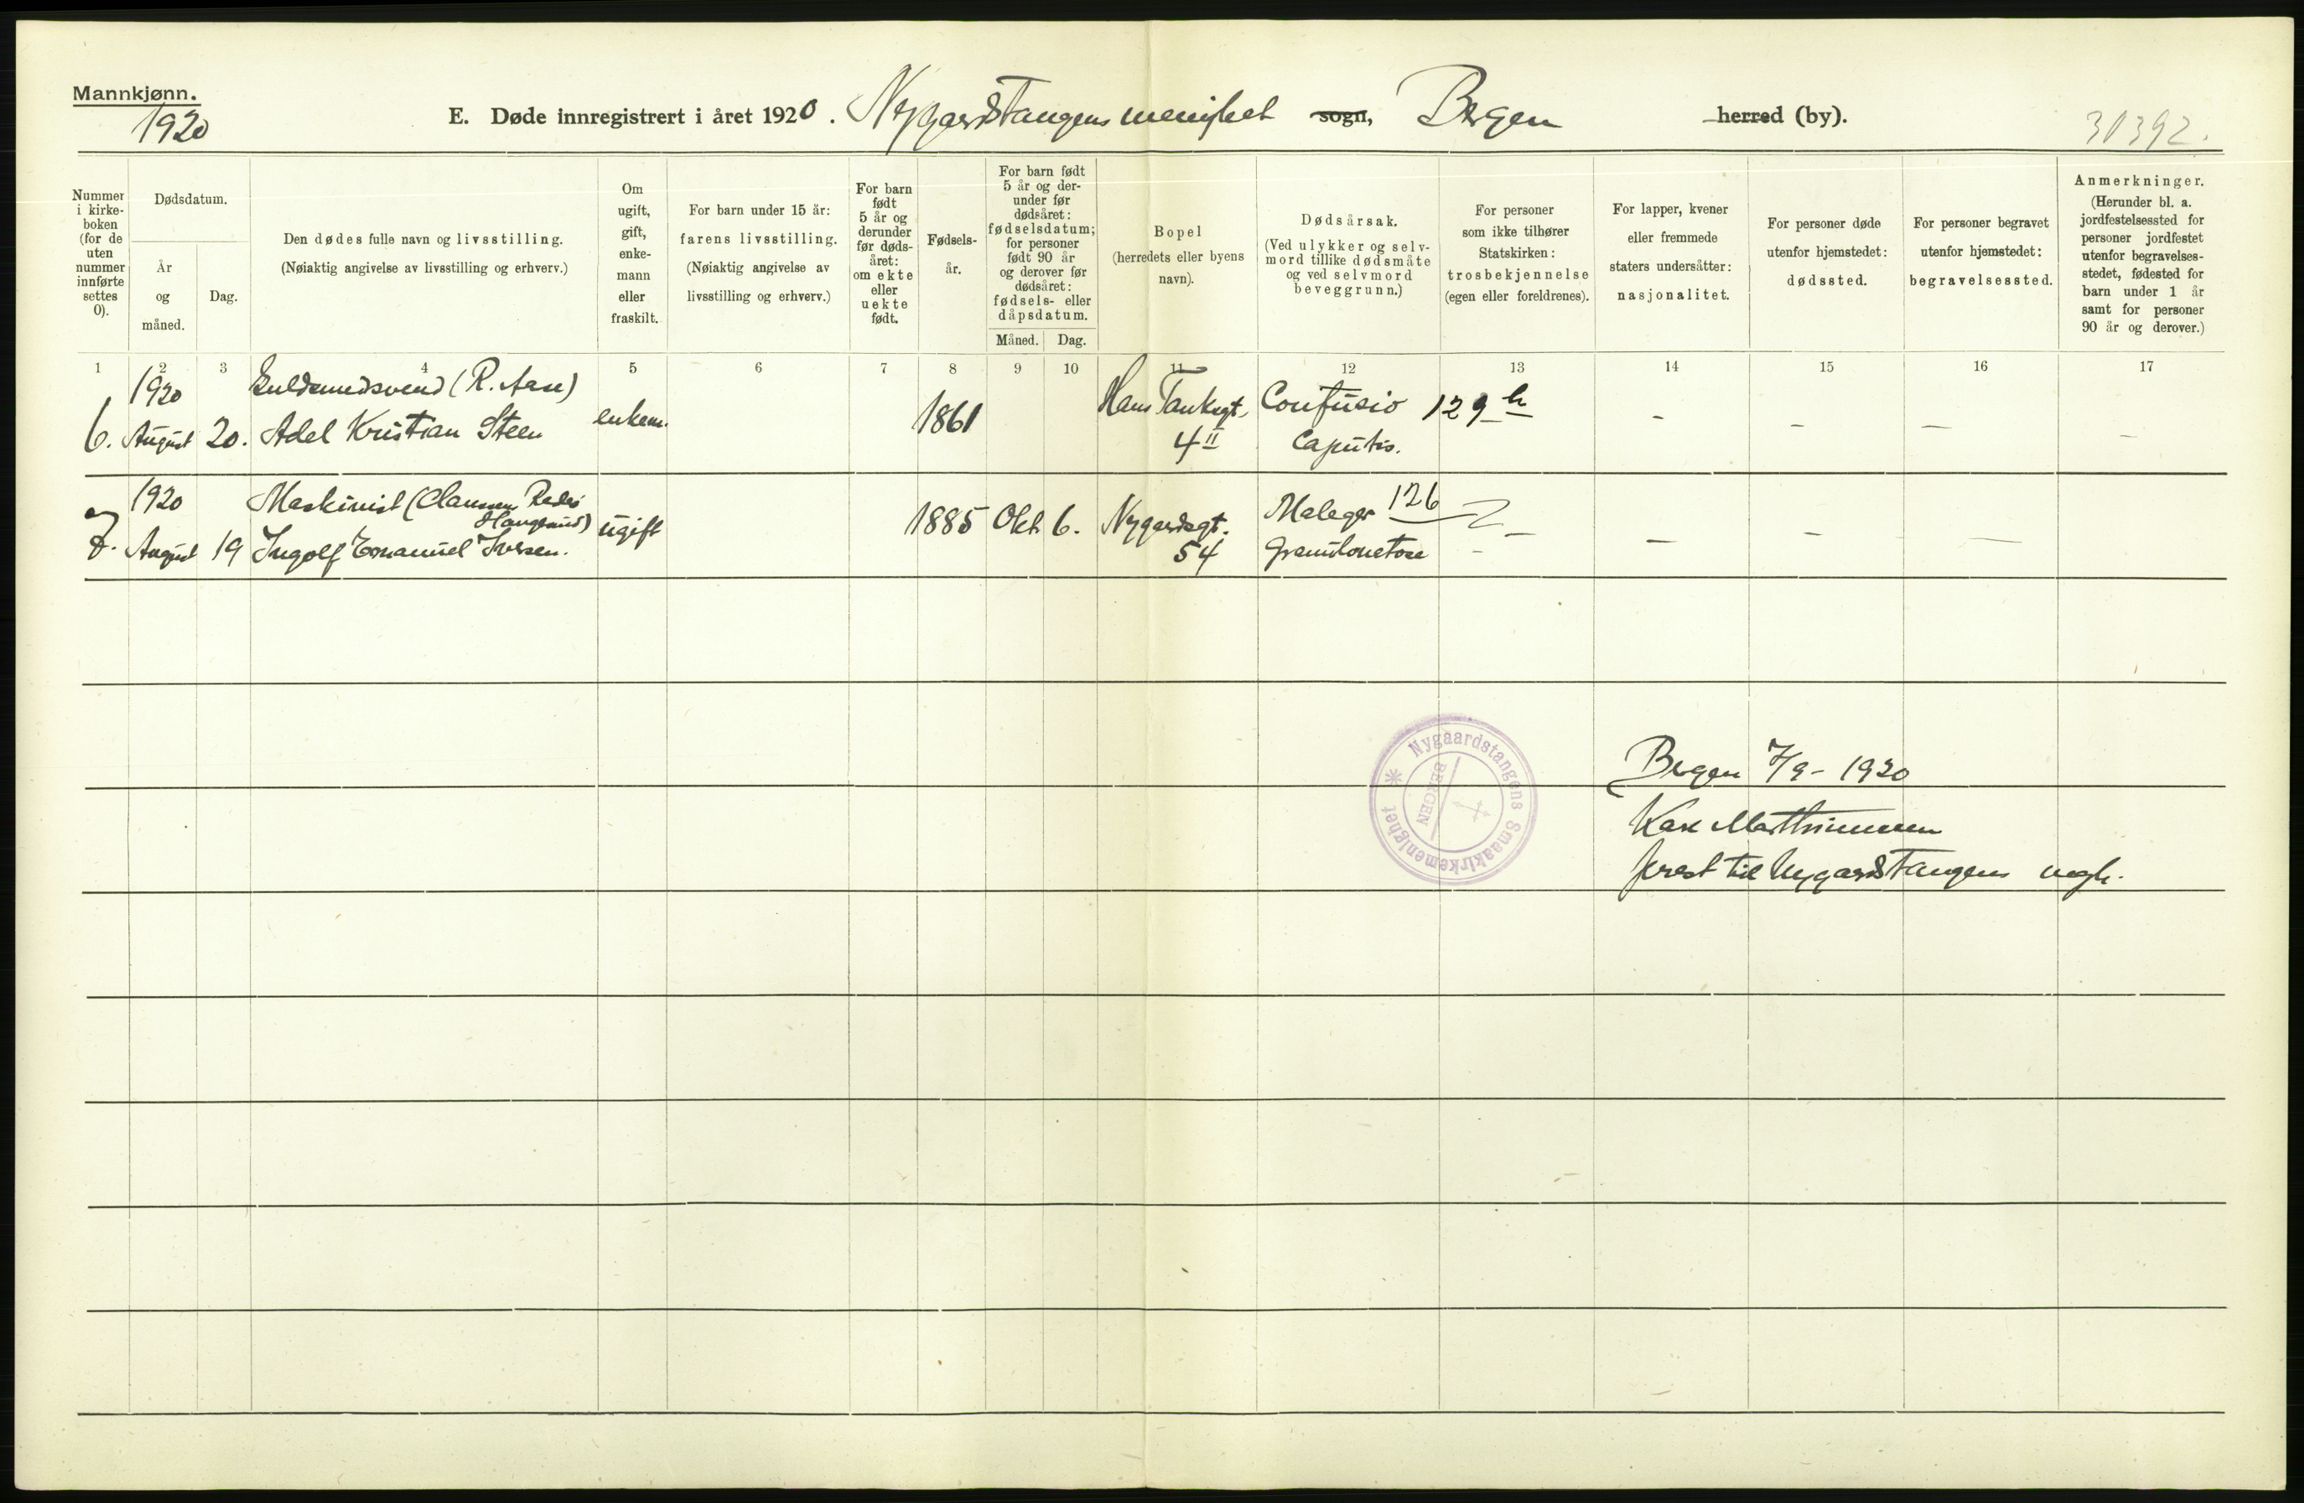 Mannkjønn.
1920
E. Døde innregistrert i året 1920. Nygaardstangens menighet sogn, Bergen herred (by).
30392.
Nummer i kirke-boken (for de uten nummer innførte settes 0).
Dødsdatum.
År og måned.
Dag.
Den dødes fulle navn og livsstilling.
(Nøiaktig angivelse av livsstilling og erhverv.)
Om ugift, gift, enke-mann eller fraskilt.
For barn under 15 år:
farens livsstilling.
(Nøiaktig angivelse av livsstilling og erhverv.)
For barn født 5 år og derunder før døds-året: om ekte eller uekte født.
Fødsels-år.
For barn født 5 år og der-under før dødsåret: fødselsdatum; for personer født 90 år og derover før dødsåret: fødsels- eller dåpsdatum.
Måned. Dag.
Bopel
(herredets eller byens navn).
Dødsårsak.
(Ved ulykker og selv-mord tillike dødsmåte og ved selvmord beveggrunn.)
For personer som ikke tilhører Statskirken: trosbekjennelse (egen eller foreldrenes).
For lapper, kvener eller fremmede staters undersåtter: nasjonalitet.
For personer døde utenfor hjemstedet: dødssted.
For personer begravet utenfor hjemstedet: begravelsessted.
Anmerkninger.
(Herunder bl. a. jordfestelsessted for personer jordfestet utenfor begravelses-stedet, fødested for barn under 1 år samt for personer 90 år og derover.)
1 2 3 4 5 6 7 8 9 10 11 12 13 14 15 16 17
1920 Guldsmedsvend (R. Aase) enkem. 1861 Hans Tanksgt. Confusio 129 h – – – –
6. August 20. Adel Kristian Steen 4 II Caputis.
1920 Maskinist (Clausen Rederi Haugesund) ugift 1885 Okt. 6. Nygaardsgt. 126 – – – –
7. August 19 Ingolf Emanuel Iversen. 54 –
Nygaardstangens Smaakirkemenighet
BERGEN
Bergen 7/9 – 1920
prest til Nygaardstangens mgh.